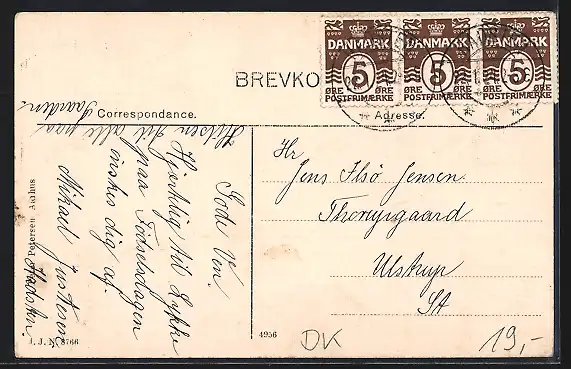 DANMARK DANMARK DANMARK
5 5 5
ØRE ØRE ØRE ØRE ØRE ØRE
POSTFRIMÆRKE POSTFRIMÆRKE POSTFRIMÆRKE
BREVKO
Correspondance.
Adresse.
Hilsen til alle paa
Gaarden
Gode Ven.
Hjertelig til Lykke
paa Fødselsdagen
ønskes dig af.
Mikael Justesen
Hadsten.
Hr
Jens Ilsø Jensen
Thorupgaard
Ulstrup
St
Petersen Aarhus
J. J. N. 8766
4956
DK
19,-